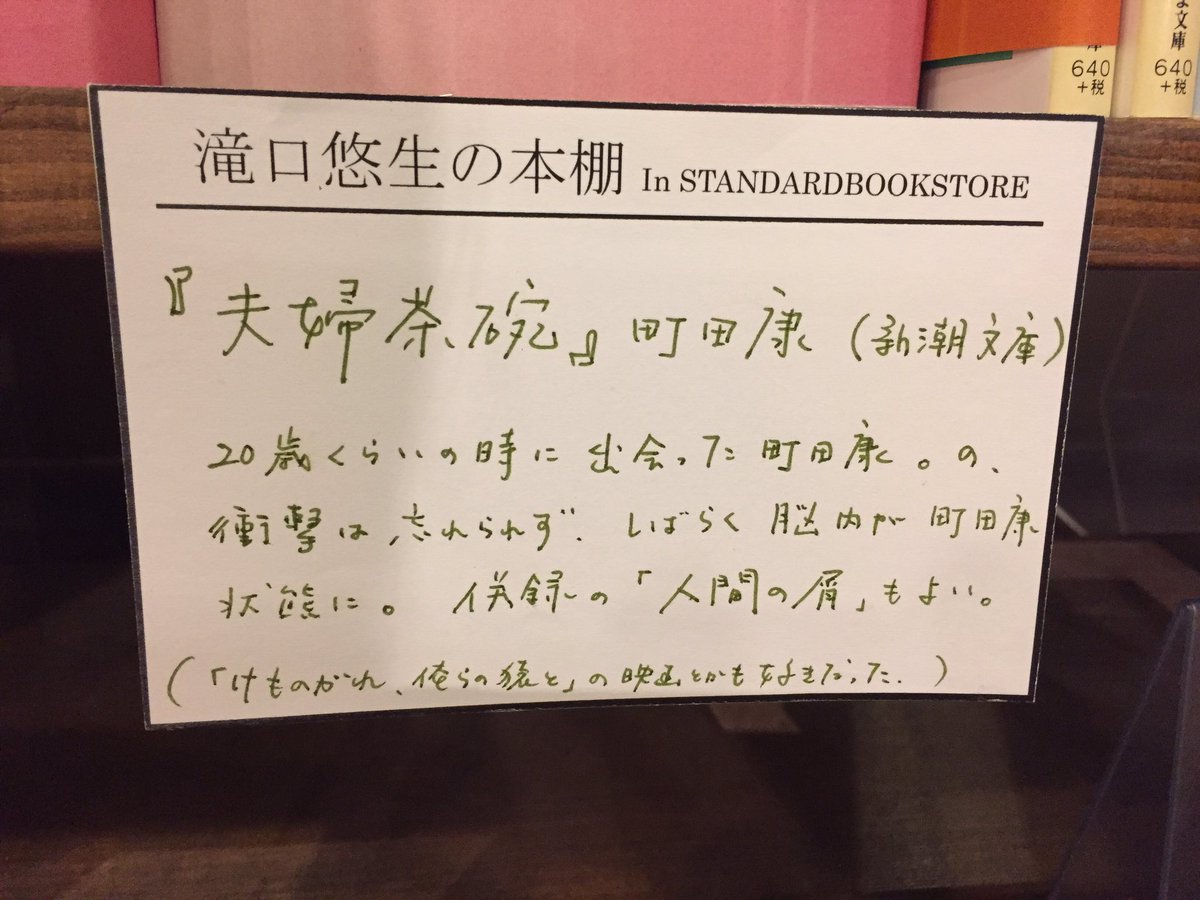 よ文庫
庫
640
+税
640
+税
滝口悠生の本棚 In STANDARDBOOKSTORE
『夫婦茶碗』町田康(新潮文庫)
20歳くらいの時に出会った町田康。の、
衝撃は忘れられず、しばらく脳内が町田康
状態に。併録の「人間の屑」もよい。
(「けものがれ、俺らの猿と」の映画とかも好きだった。)